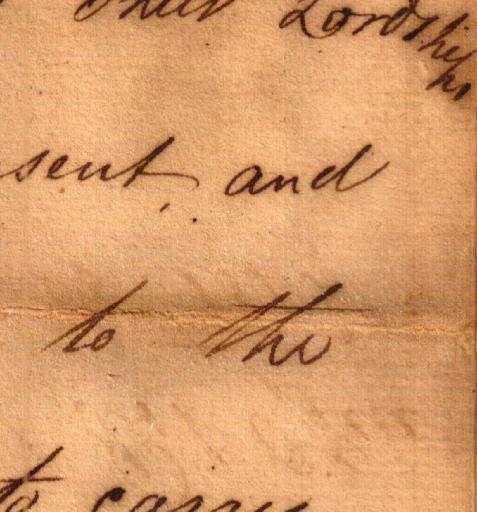 their Lordships
sent, and
to the
to carry